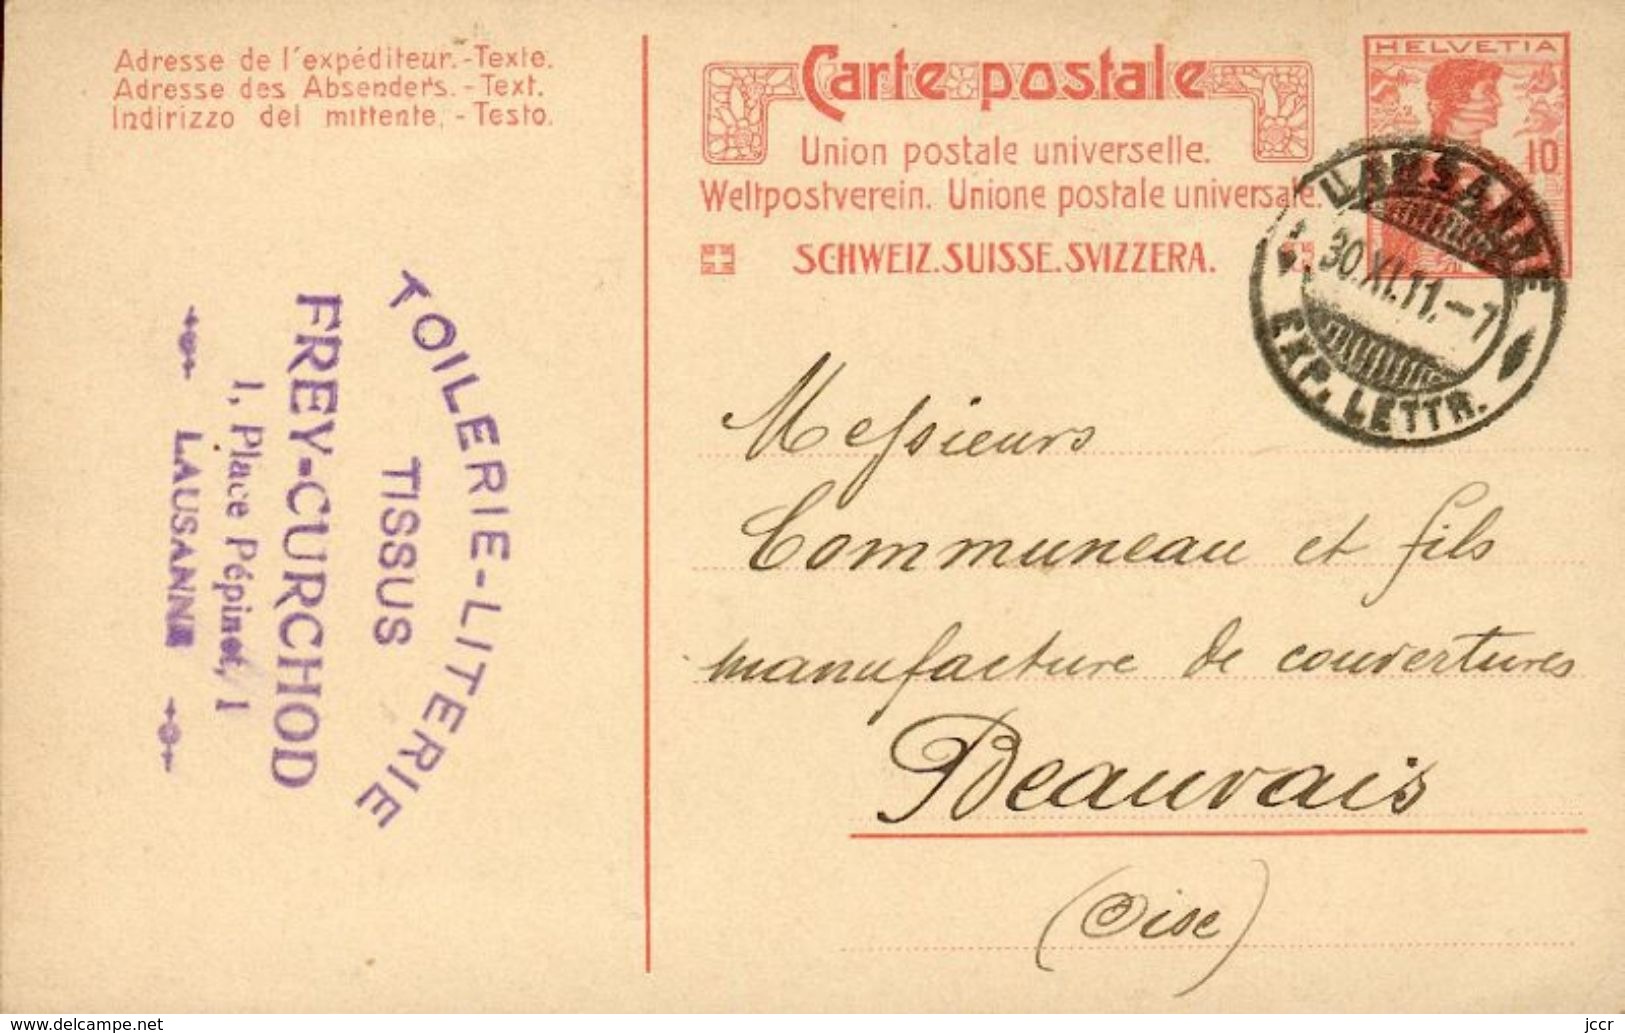 Adresse de l'expéditeur.-Texte.
Adresse des Absenders.-Text.
Indirizzo del mittente.-Testo.
Carte postale
Union postale universelle.
Weltpostverein. Unione postale universale.
SCHWEIZ.SUISSE.SVIZZERA.
HELVETIA
10
LAUSANNE
30.XI.11.-7
EXP. LETTR.
TOILERIE-LITERIE
TISSUS
FREY-CURCHOD
1, Place Pépinet, 1
LAUSANNE
Messieurs
Communeau et fils
manufacture de couvertures
Beauvais
(Oise)
www.delcampe.net
jccr